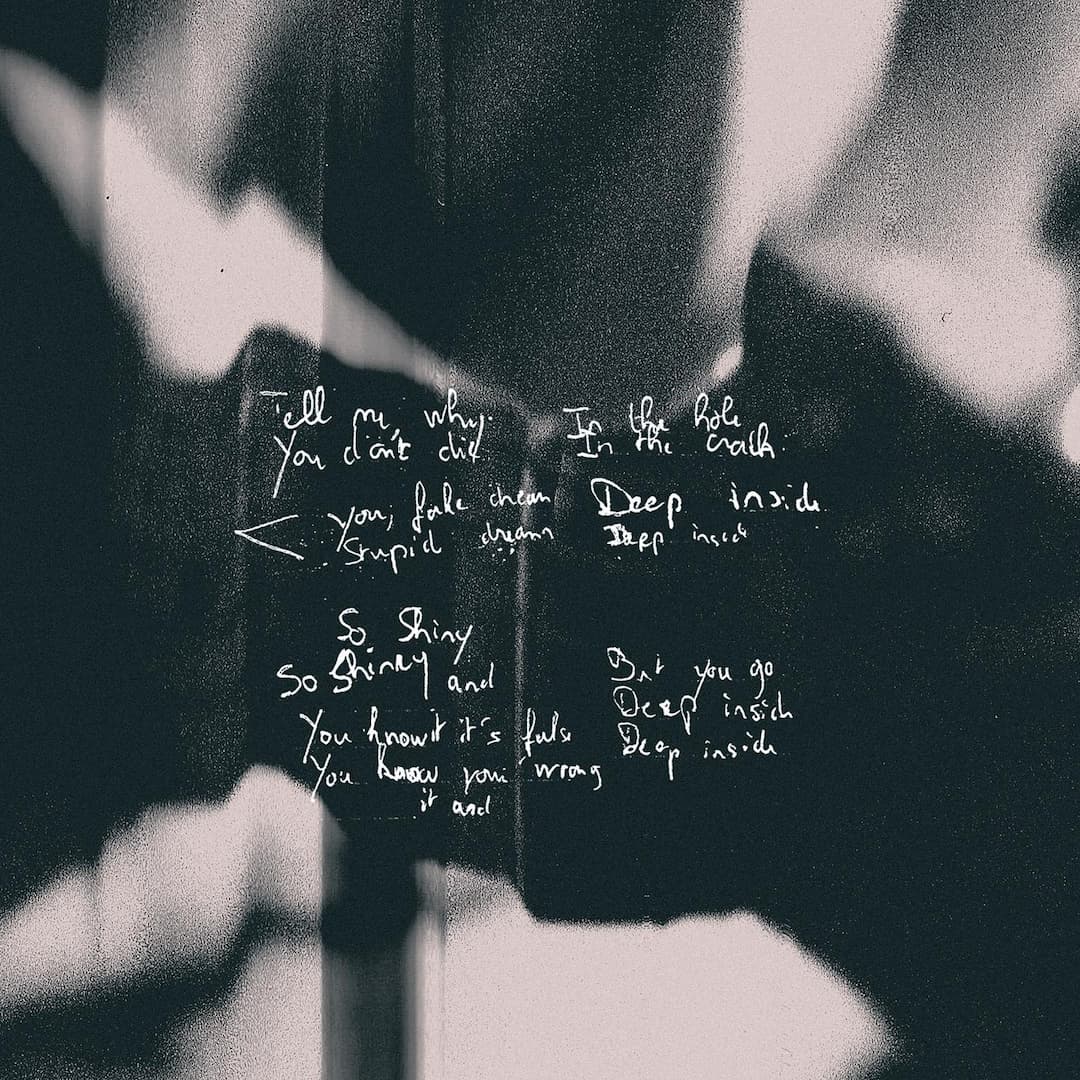 Tell me, why
You don't did
You, fake dream
Stupid dream
So Shiny
So Shinny and
You know it it's false
You know your wrong
it and
In the hole
In the crack
Deep inside
Deep inside
But you go
Deep inside
Deep inside